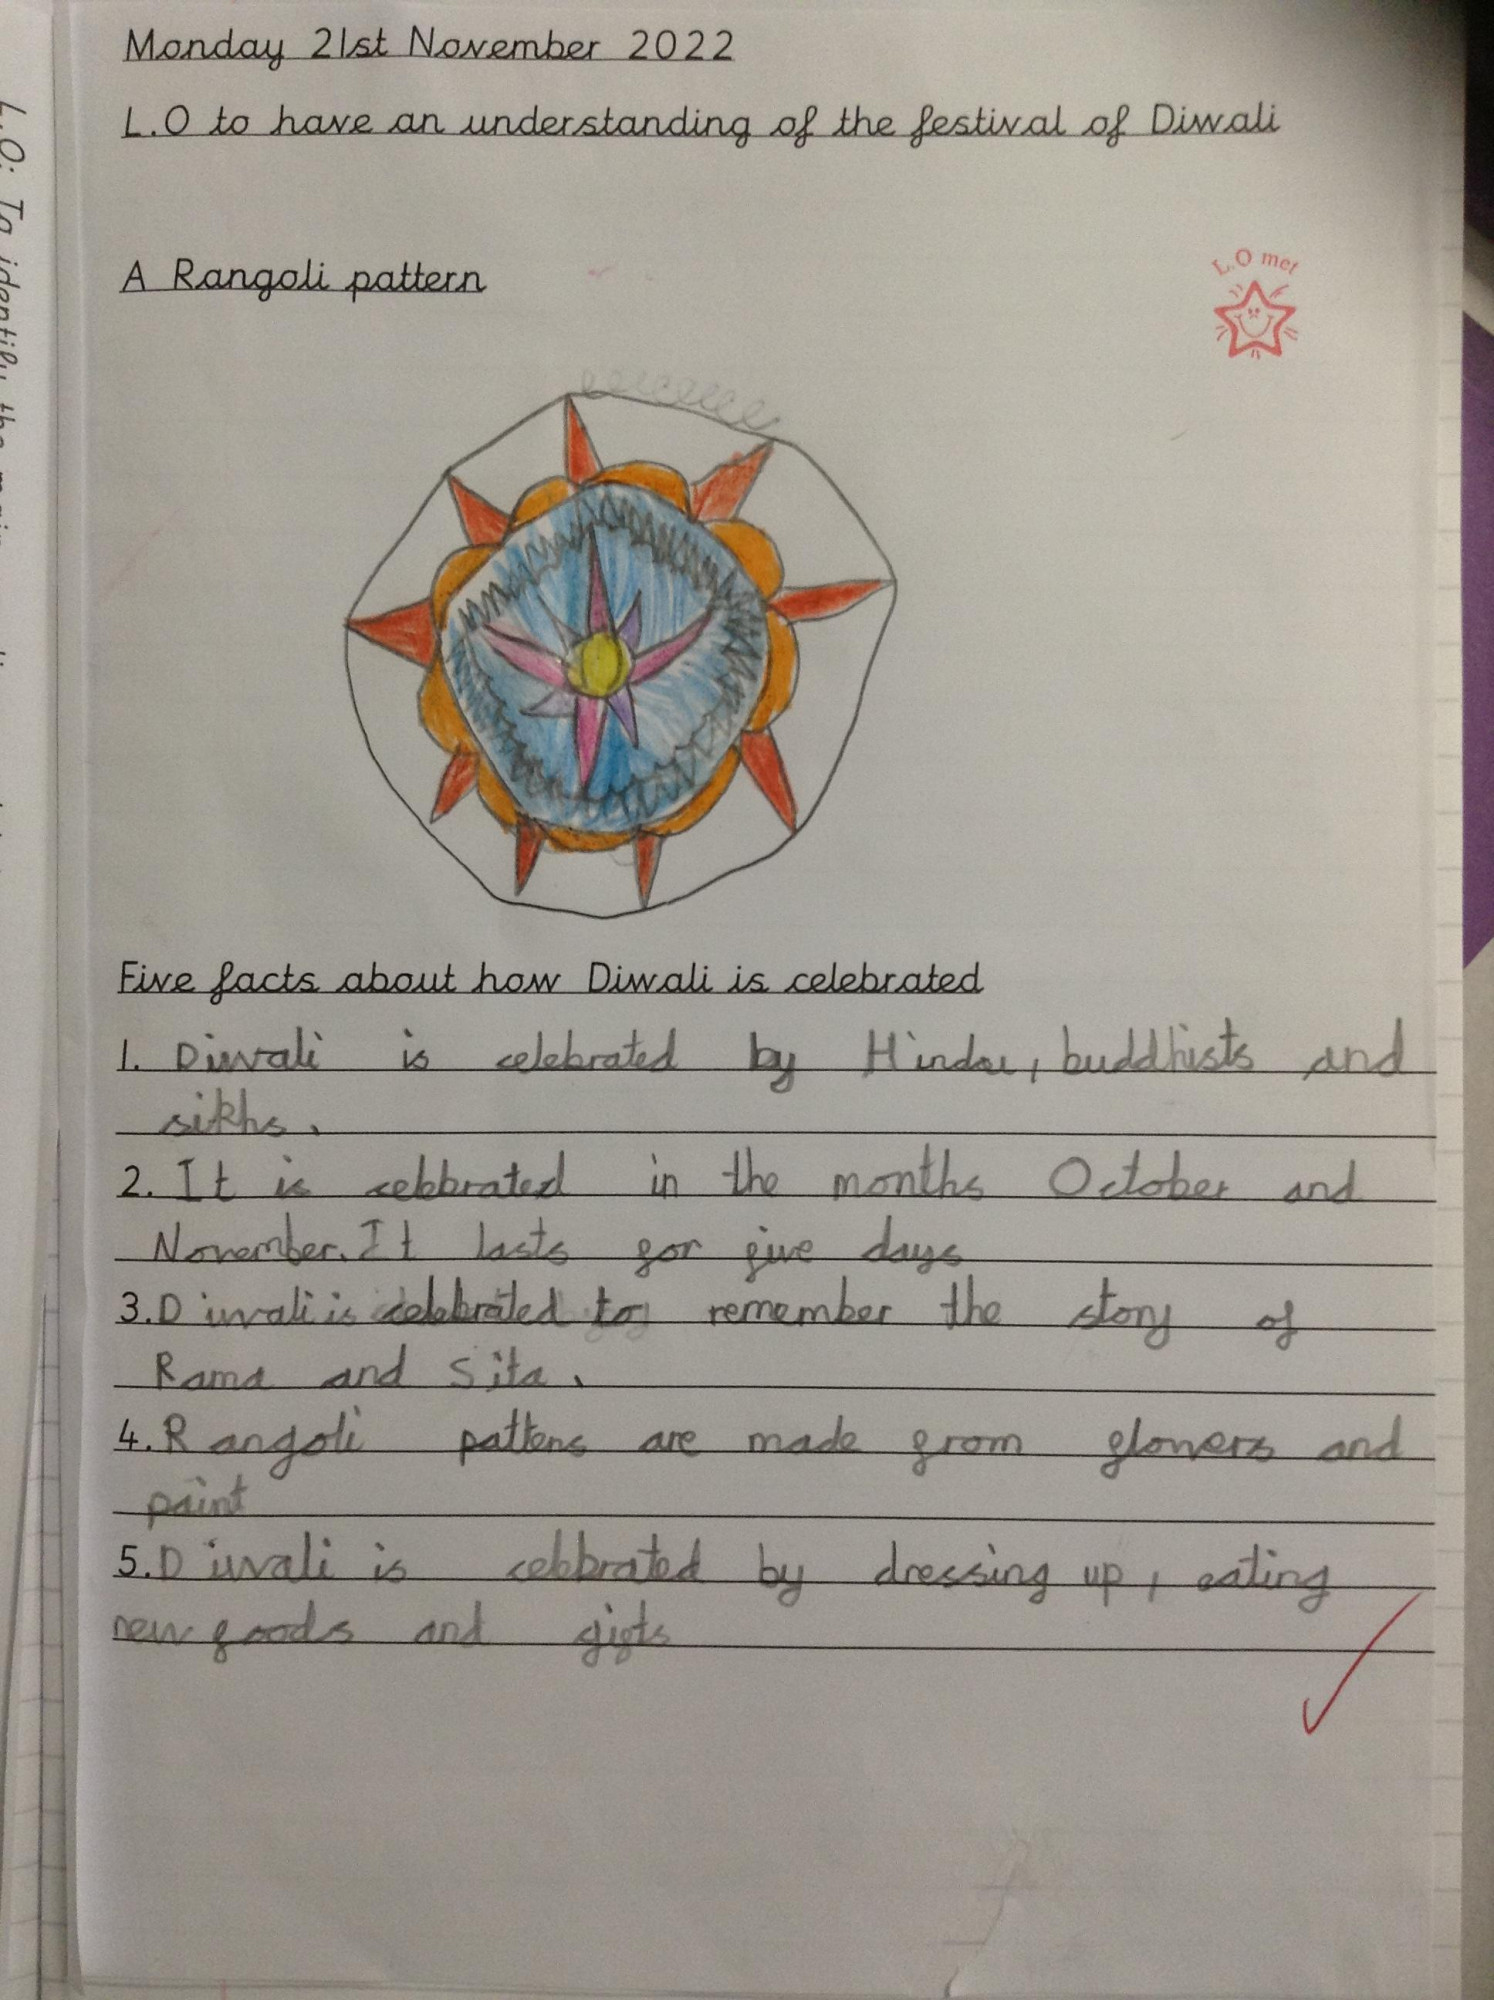 Monday 21st November 2022
L.O to have an understanding of the festival of Diwali
A Rangoli pattern
L.O met
Five facts about how Diwali is celebrated
1. Diwali is celebrated by Hindu, buddhists and
sikhs.
2. It is celebbrated in the months October and
November. It lasts for five days
3. Diwali is celebrated to remember the story of
Rama and Sita.
4. Rangoli pattens are made from flowers and
paint
5. Diwali is celebbrated by dressing up, eating
new foods and gifts
L.O: To identify the main